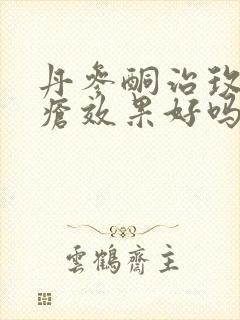 丹参酮治玫
疮效果好吗
雲鶴齋主